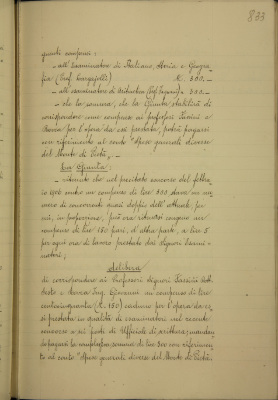 833
guenti compensi:
- all'esaminatore di Italiano, Storia e Geogra
fia (Prof. ) £. 300.-
- all'esaminatore di Aritmetica (Prof. ) " 300.-
- che la somma, che la Giunta stabilirà di
corrispondere come compenso ai professori e
per l'opera da essi prestata, potrà pagarsi
con riferimento al conto "Spese generali diverse
del Monte di Pietà".-
La Giunta:
- ritenuto che nel precedente concorso del febbra
io 1906 venne un compenso di lire 300 dato un nu
mero di concorrenti quasi doppio dell'attuale per
cui, in proporzione, può ora ridursi
compenso di lire 150 pari, d'altra parte, a lire 5
per ogni ora di lavoro prestata dai signori esami-
natori;
delibera
di corrispondere ai Professori signori
e Ing. Giovanni un compenso di lire
centocinquanta (£. 150) cadauno per l'opera da es
si prestata in qualità di esaminatori nel recente
concorso a posti di Ufficiale di scrittura; mandan
do pagarsi la complessiva somma di lire 300 con riferimen
to al conto "Spese generali diverse del Monte di Pietà".